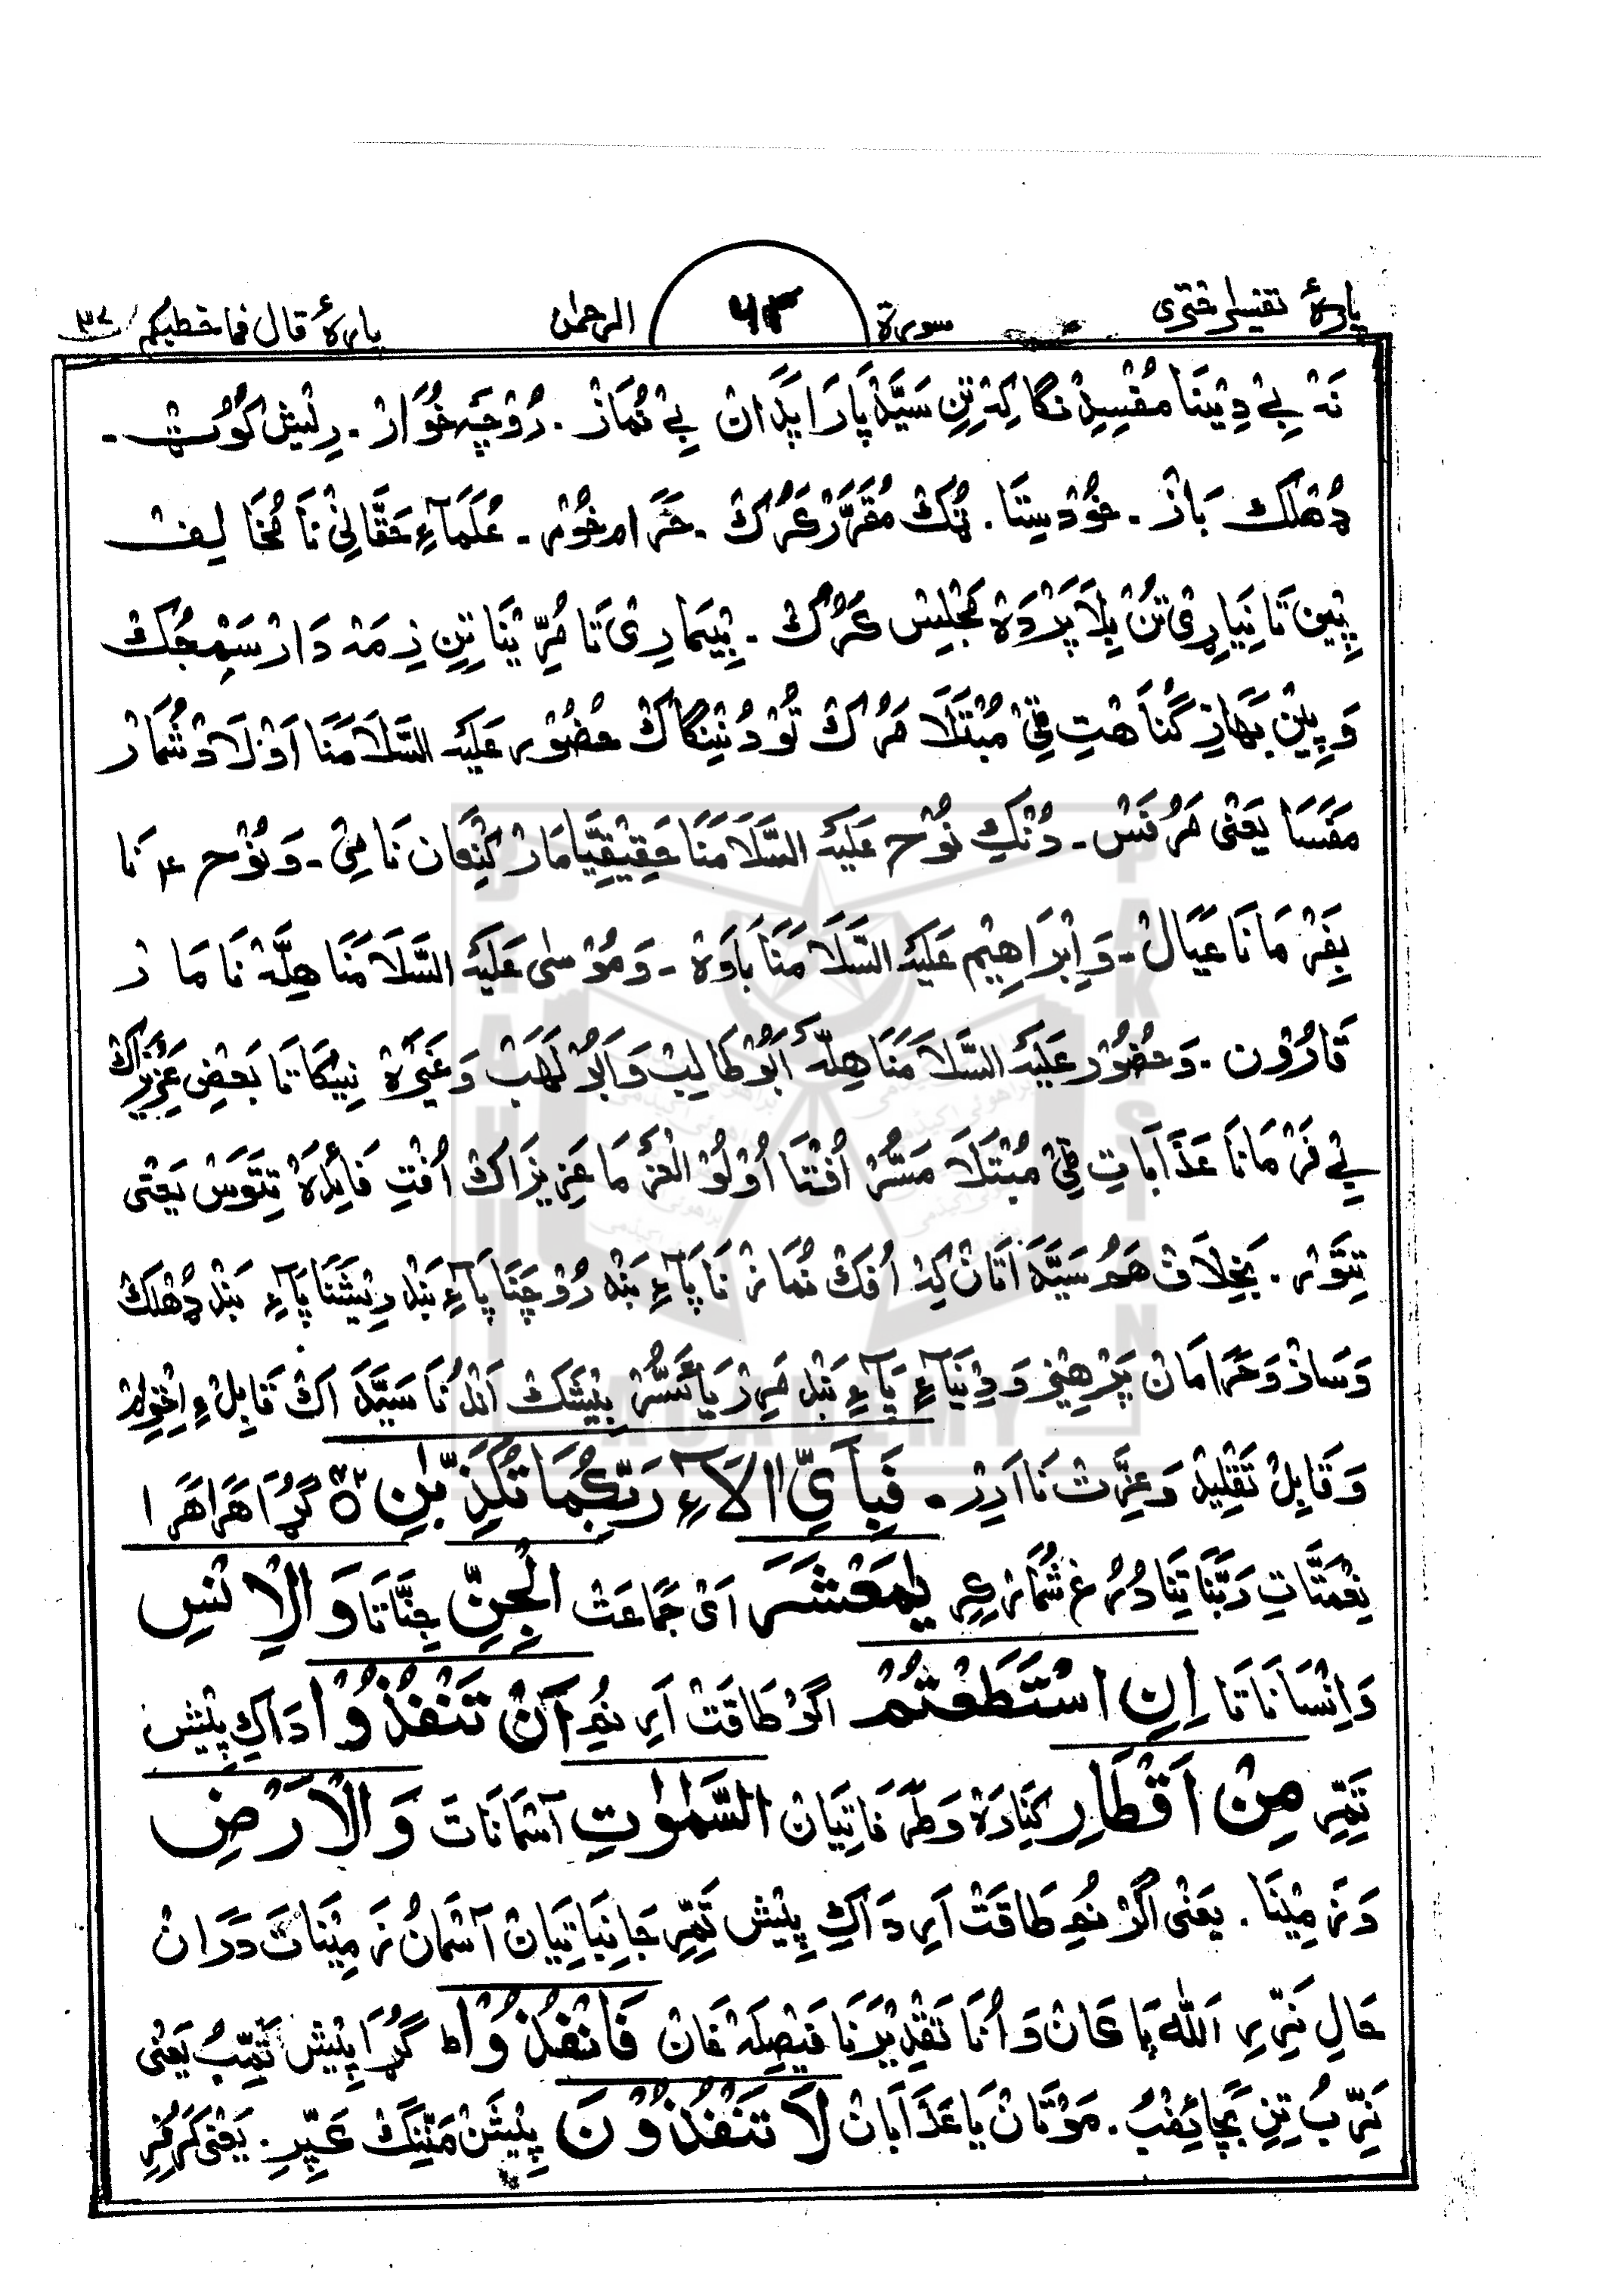 پارۂ تفسیر اختری سورۃ ۶۳ الرحمٰن پارۂ قال فما خطبکم ۲۷
نَہ بِے دِیْنَنَا مُفْسِدِنْگَا کِہ تِنِ سَیَّدْ پَارَا پَدَانْ بِے نُمَازْ۔ رُوْچَہ خُوَارْ۔ رِیْش کُوْٹ۔
دُھْلک بَازْ۔ خُوْدسِتَا۔ تُنک مُقَرَّرْ عَرُکْ۔ حَرَام خُوْر۔ عُلَمَآءِ حَقَّانِیْ نَا مُخَالِف
پِیْن تَا نِیَارِیْ تَنْ بِلَا پَرْدَہْ مَجْلِسْ عَرُکْ۔ بِیْمَارِیْ تَا مُرِیْنَا تِنِ ذِمَہْ دَارْ سَمِجُکْ
وَ پِیْن بَھَازْ گُنَاھْتِ ٹِیْ مُبْتَلَا مَرُکْ تُوْ دُنِنْگَاکْ حُضُوْر عَلَیْہِ السَّلَامَنَا اَوْلَادْ شُمَارْ
مَفَسَا یَعْنِیْ مَرُفَسْ۔ دُنْکِ نُوْح عَلَیْہِ السَّلَامَنَا حَقِیْقِیَّا مَارْ کِنْعَان نَامِیْ۔ وَ نُوْح ع نَا
بِفَرْمَانَا عَیَالْ۔ وَ اِبْرَاھِیْم عَلَیْہِ السَّلَامَنَا بَاوَہْ۔ وَ مُوْسٰی عَلَیْہِ السَّلَامَنَا ھِلَّہْ نَا مَارْ
قَارُوْن۔ وَ حُضُوْر عَلَیْہِ السَّلَامَنَا ھِلَّہْ اَبُوْ طَالِبْ وَ اَبُوْ لَھَبْ وَغَیْرَہْ نِیْکَاتَا بَعْضِ عَزِیْزَاکْ
بِے فَرْمَانَا عَذَابَاتِ ٹِیْ مُبْتَلَا مَسُّرْ اُفْتَا اُوْلُوْ الْعَزْمَا عَزِیْزَاکْ اُفْتِ فَائِدَہْ تِتَّوَسْ یَعْنِیْ
تِتَّوْر۔ بَخِلَافْ ھَمُ سَیَّدْ اَتَانْ کِہْ اُفَکْ نُمَازْ نَا پَآءِ بَنْد رُوْچَنَا پَآءِ بَنْد رِیْشَنَا پَآءِ بَنْد دُھْلک
وَ سَازْ وَ حَرَامَانْ پَرْھِیْز وَ دِیْنَآءِ پَآءِ بَنْد مَرِرْ یَا مَسُّرْ بِیْشَکْ اَنْدُنَا سَیَّدَاکْ قَابِلْءِ اِحْتِرَامْ
وَ قَابِلْ تَقْلِیْد وَ عِزَّتْ نَا اَرِرْ۔ فَبِاَیِّ اٰلَآءِ رَبِّکُمَا تُکَذِّبٰنِ ۝۳۲ گُڑَا ھَرَا ھَرَا
نِعْمَتَاتِ رَبَّنَا تِنَا دُرُغ شُمَارْ عِرِ یٰمَعْشَرَ اَیْ جَمَاعَتْ الْجِنِّ جِنَّاتَا وَالْاِنْسِ
وَ اِنْسَانَاتَا اِنِ اسْتَطَعْتُمْ اگَرْ طَاقَتْ اَرِ نُمِ اَنْ تَنْفُذُوْا دَاکِ پِیْش
تَمِّرِ مِنْ اَقْطَارِ کِنَارَہْ وَ طَرَفَاتِیَانْ السَّمٰوٰتِ آسْمَانَاتَ وَالْاَرْضِ
وَ زَمِیْنَا۔ یَعْنِیْ اَگَرْ نُمِ طَاقَتْ اَرِ دَاکِ پِیْش تَمِّرِ جَانِبَاتِیَانْ آسْمَانُ زَمِیْنَاتَ دَرَانْ
حَالِ نَرِّرِ اَللّٰہ پَاعَانْ وَ اُنَا تَقْدِیْرْنَا فَیْصِلَہْ غَانْ فَانْفُذُوْا ط گُڑَا پِیْش تَمِّبُ یَعْنِیْ
نَرِّبُ تِنِ بَچَائِفْبُ۔ مَوْتَانْ یَا عَذَابَانْ لَا تَنْفُذُوْنَ پِیْشَنْ مَنِّنْگ عَپِّرِ۔ یَعْنِیْ